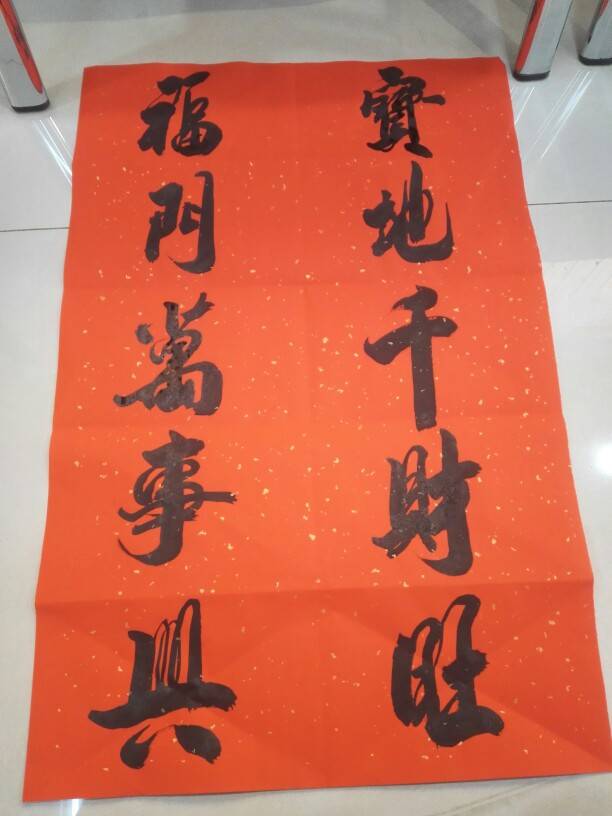 寶地千財旺
福門萬事興